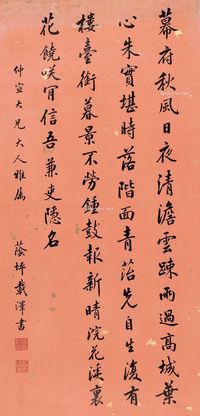 幕府秋風日夜清澹雲疎雨過高城葉
心朱實堪時落階面青苔先自生復有
樓臺銜暮景不勞鍾鼓報新晴浣花溪裏
花饒咲肎信吾兼吏隱名
仲宣大兄大人雅屬
蔭坪載澤書